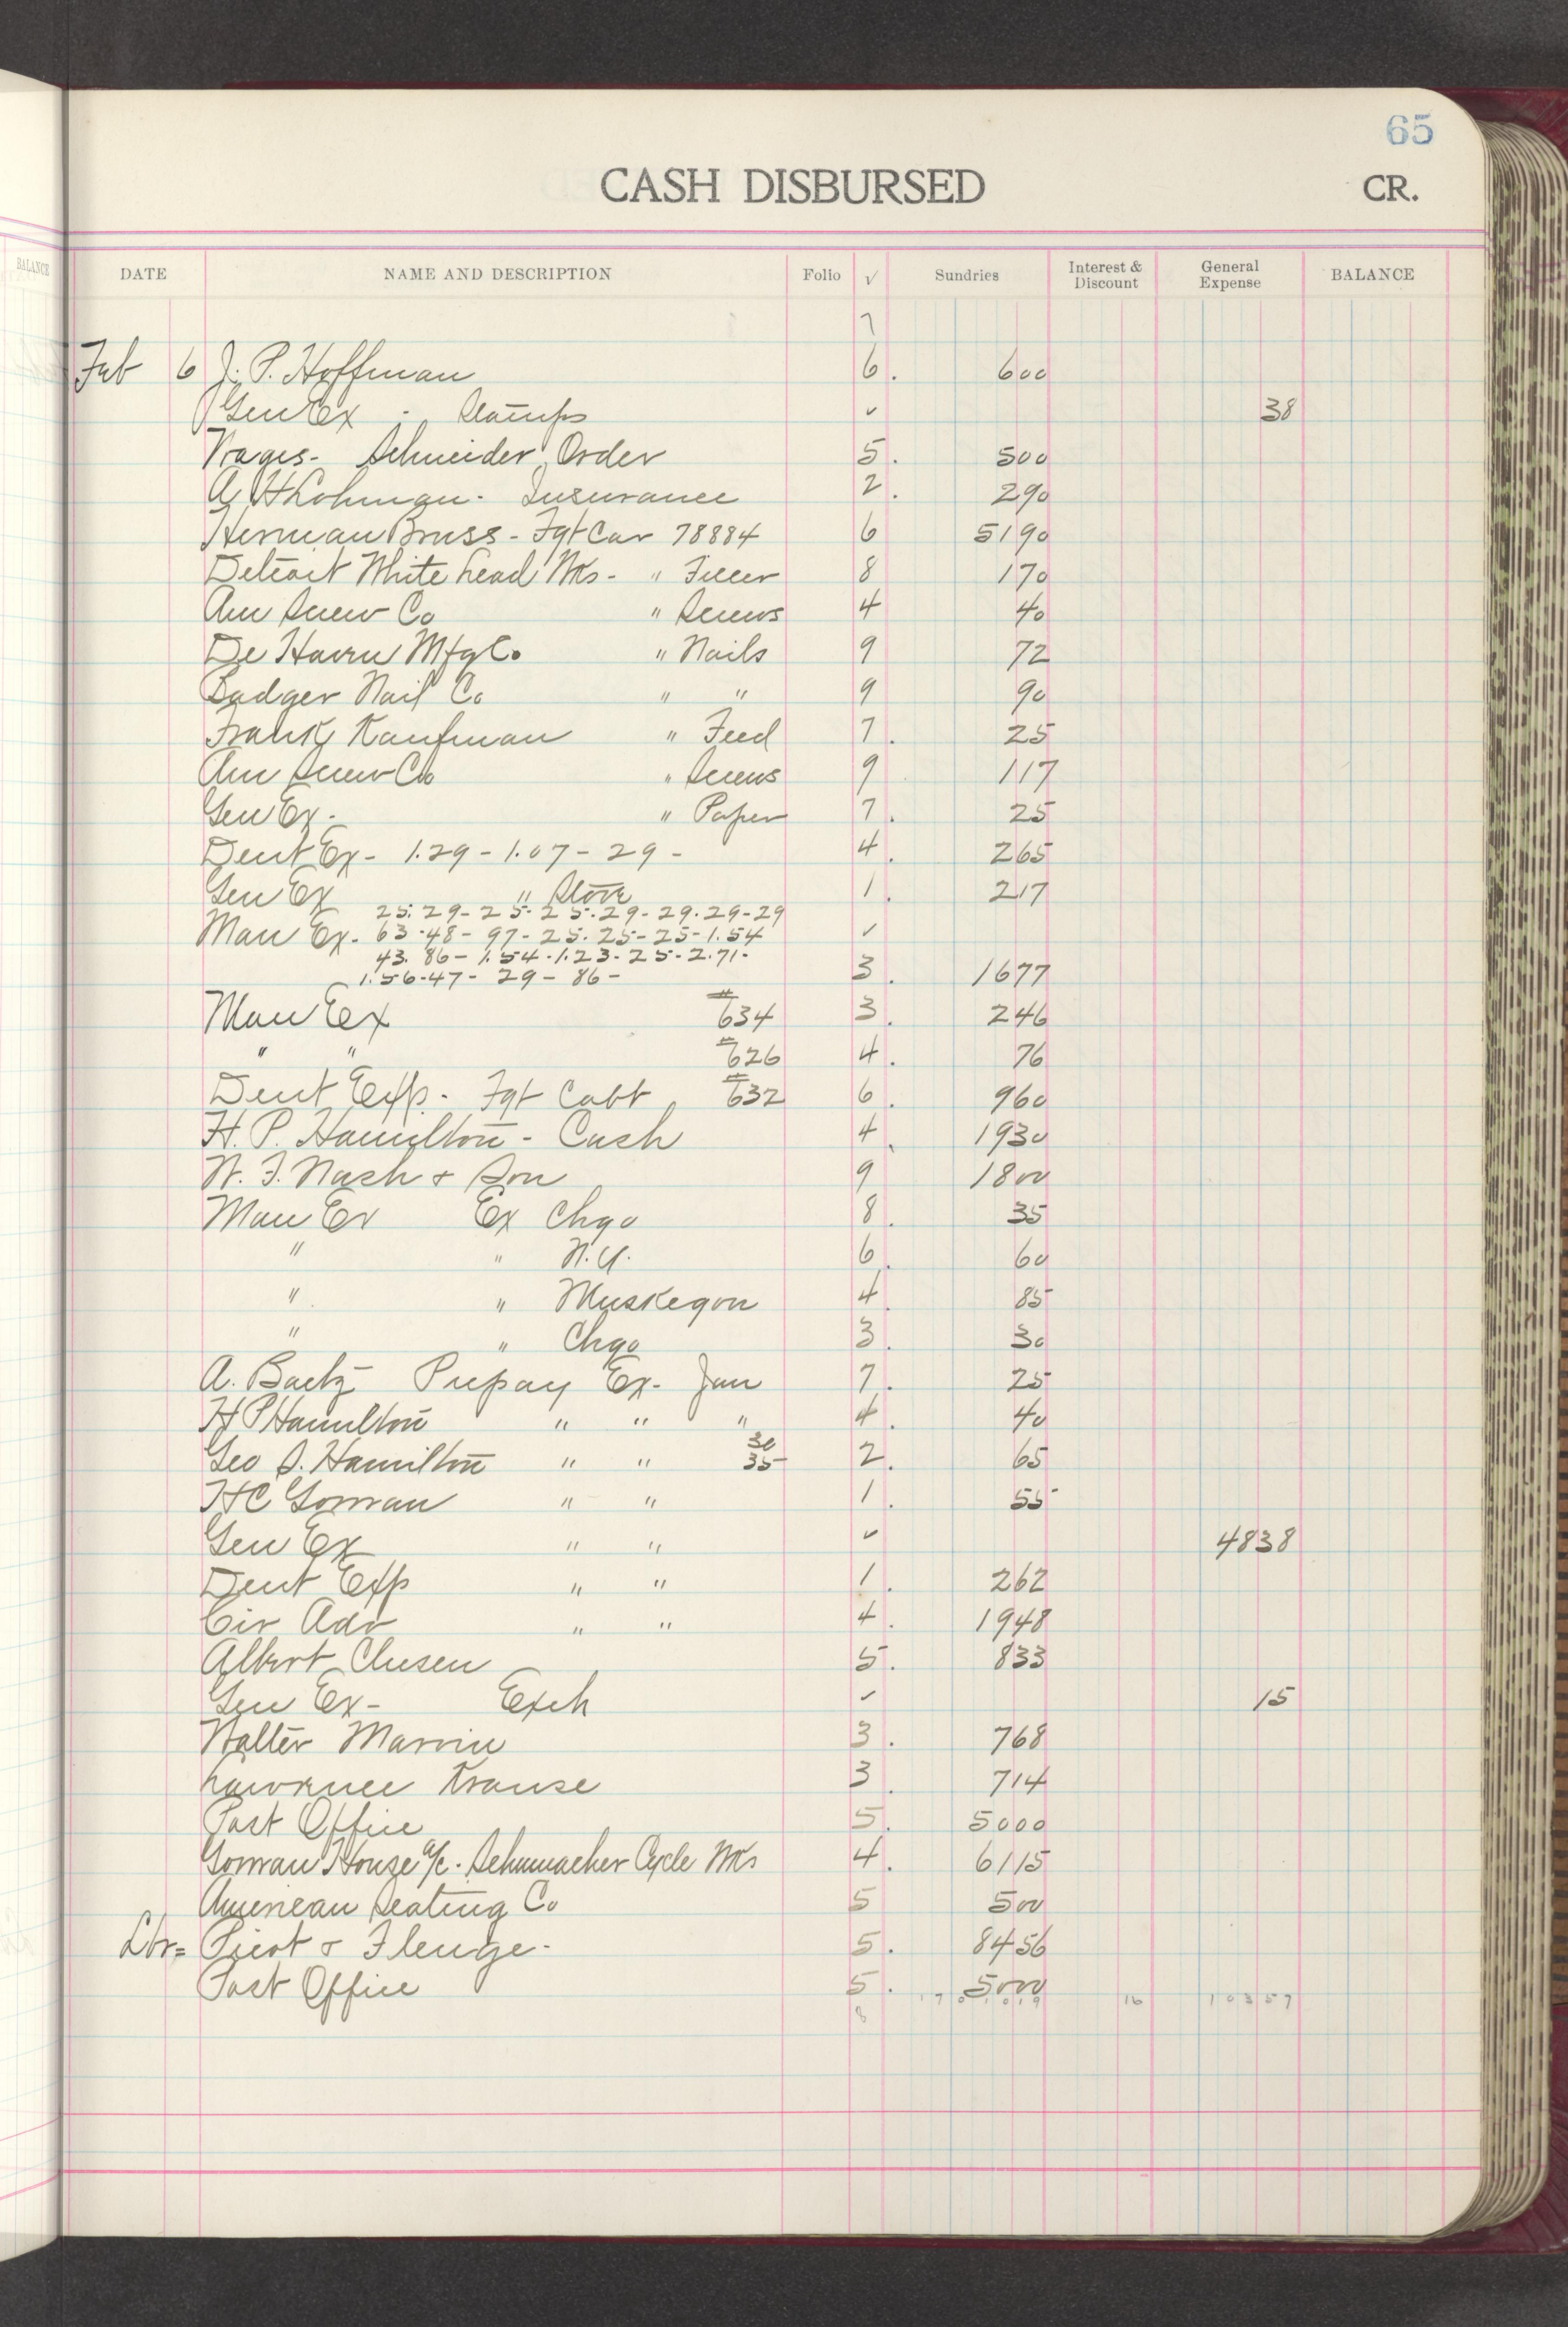 65
CASH DISBURSED CR.
BALANCE
DATE NAME AND DESCRIPTION Folio √ Sundries Interest & Discount General Expense BALANCE
7
Feb 6 J. P. Hoffman 6. 600
Gen Ex - Stamps ✓ 38
Wages - Schneider Order 5. 500
A H Lohman - Insurance 2. 290
Herman Bruss - Fgt Car 78884 6 5190
Detroit White Lead Wks - " Filler 8 170
Am Screw Co " Screws 4 40
De Haven Mfg Co " Nails 9 72
Badger Nail Co " " 9 90
Frank Kaufman " Feed 7. 25
Am Screw Co " Screws 9 117
Gen Ex - " Paper 7. 25
Dent Ex - 1.29 - 1.07 - 29 - 4. 265
Gen Ex " Stove 1. 217
25. 29 - 25 - 25. 29 - 29. 29 - 29
Man Ex - 63 - 48 - 97 - 25. 25 - 25 - 1.54 ✓
43. 86 - 1.54 - 1.23 - 25 - 2.71 -
1.56 - 47 - 29 - 86 - 3. 1677
Man Ex #634 3. 246
" " #626 4. 76
Dent Exp. - Fgt Cabt #632 6. 960
H. P. Hamilton - Cash 4. 1930
W. F. Nash & Son 9 1800
Man Ex Ex Chgo 8. 35
" " N.Y. 6. 60
" " Muskegon 4. 85
" " Chgo 3. 30
A. Baetz Prepay Ex - Jan 7. 25
H P Hamilton " " " 4. 40
30
Geo S. Hamilton " " 35 2. 65
H C Gorman " " 1. 55
Gen Ex " " ✓ 4838
Dent Exp " " 1. 262
Cir Adv " " 4. 1948
Albert Clusen 5. 833
Gen Ex - Exch ✓ 15
Walter Marvin 3. 768
Lawrence Krause 3. 714
Post Office 5. 5000
Gorman House a/c - Schumacher Cycle Wks 4. 6115
American Seating Co 5 500
Lbr = Picot & Flenge - 5. 8456
Post Office 5. 5000
8 16 10357